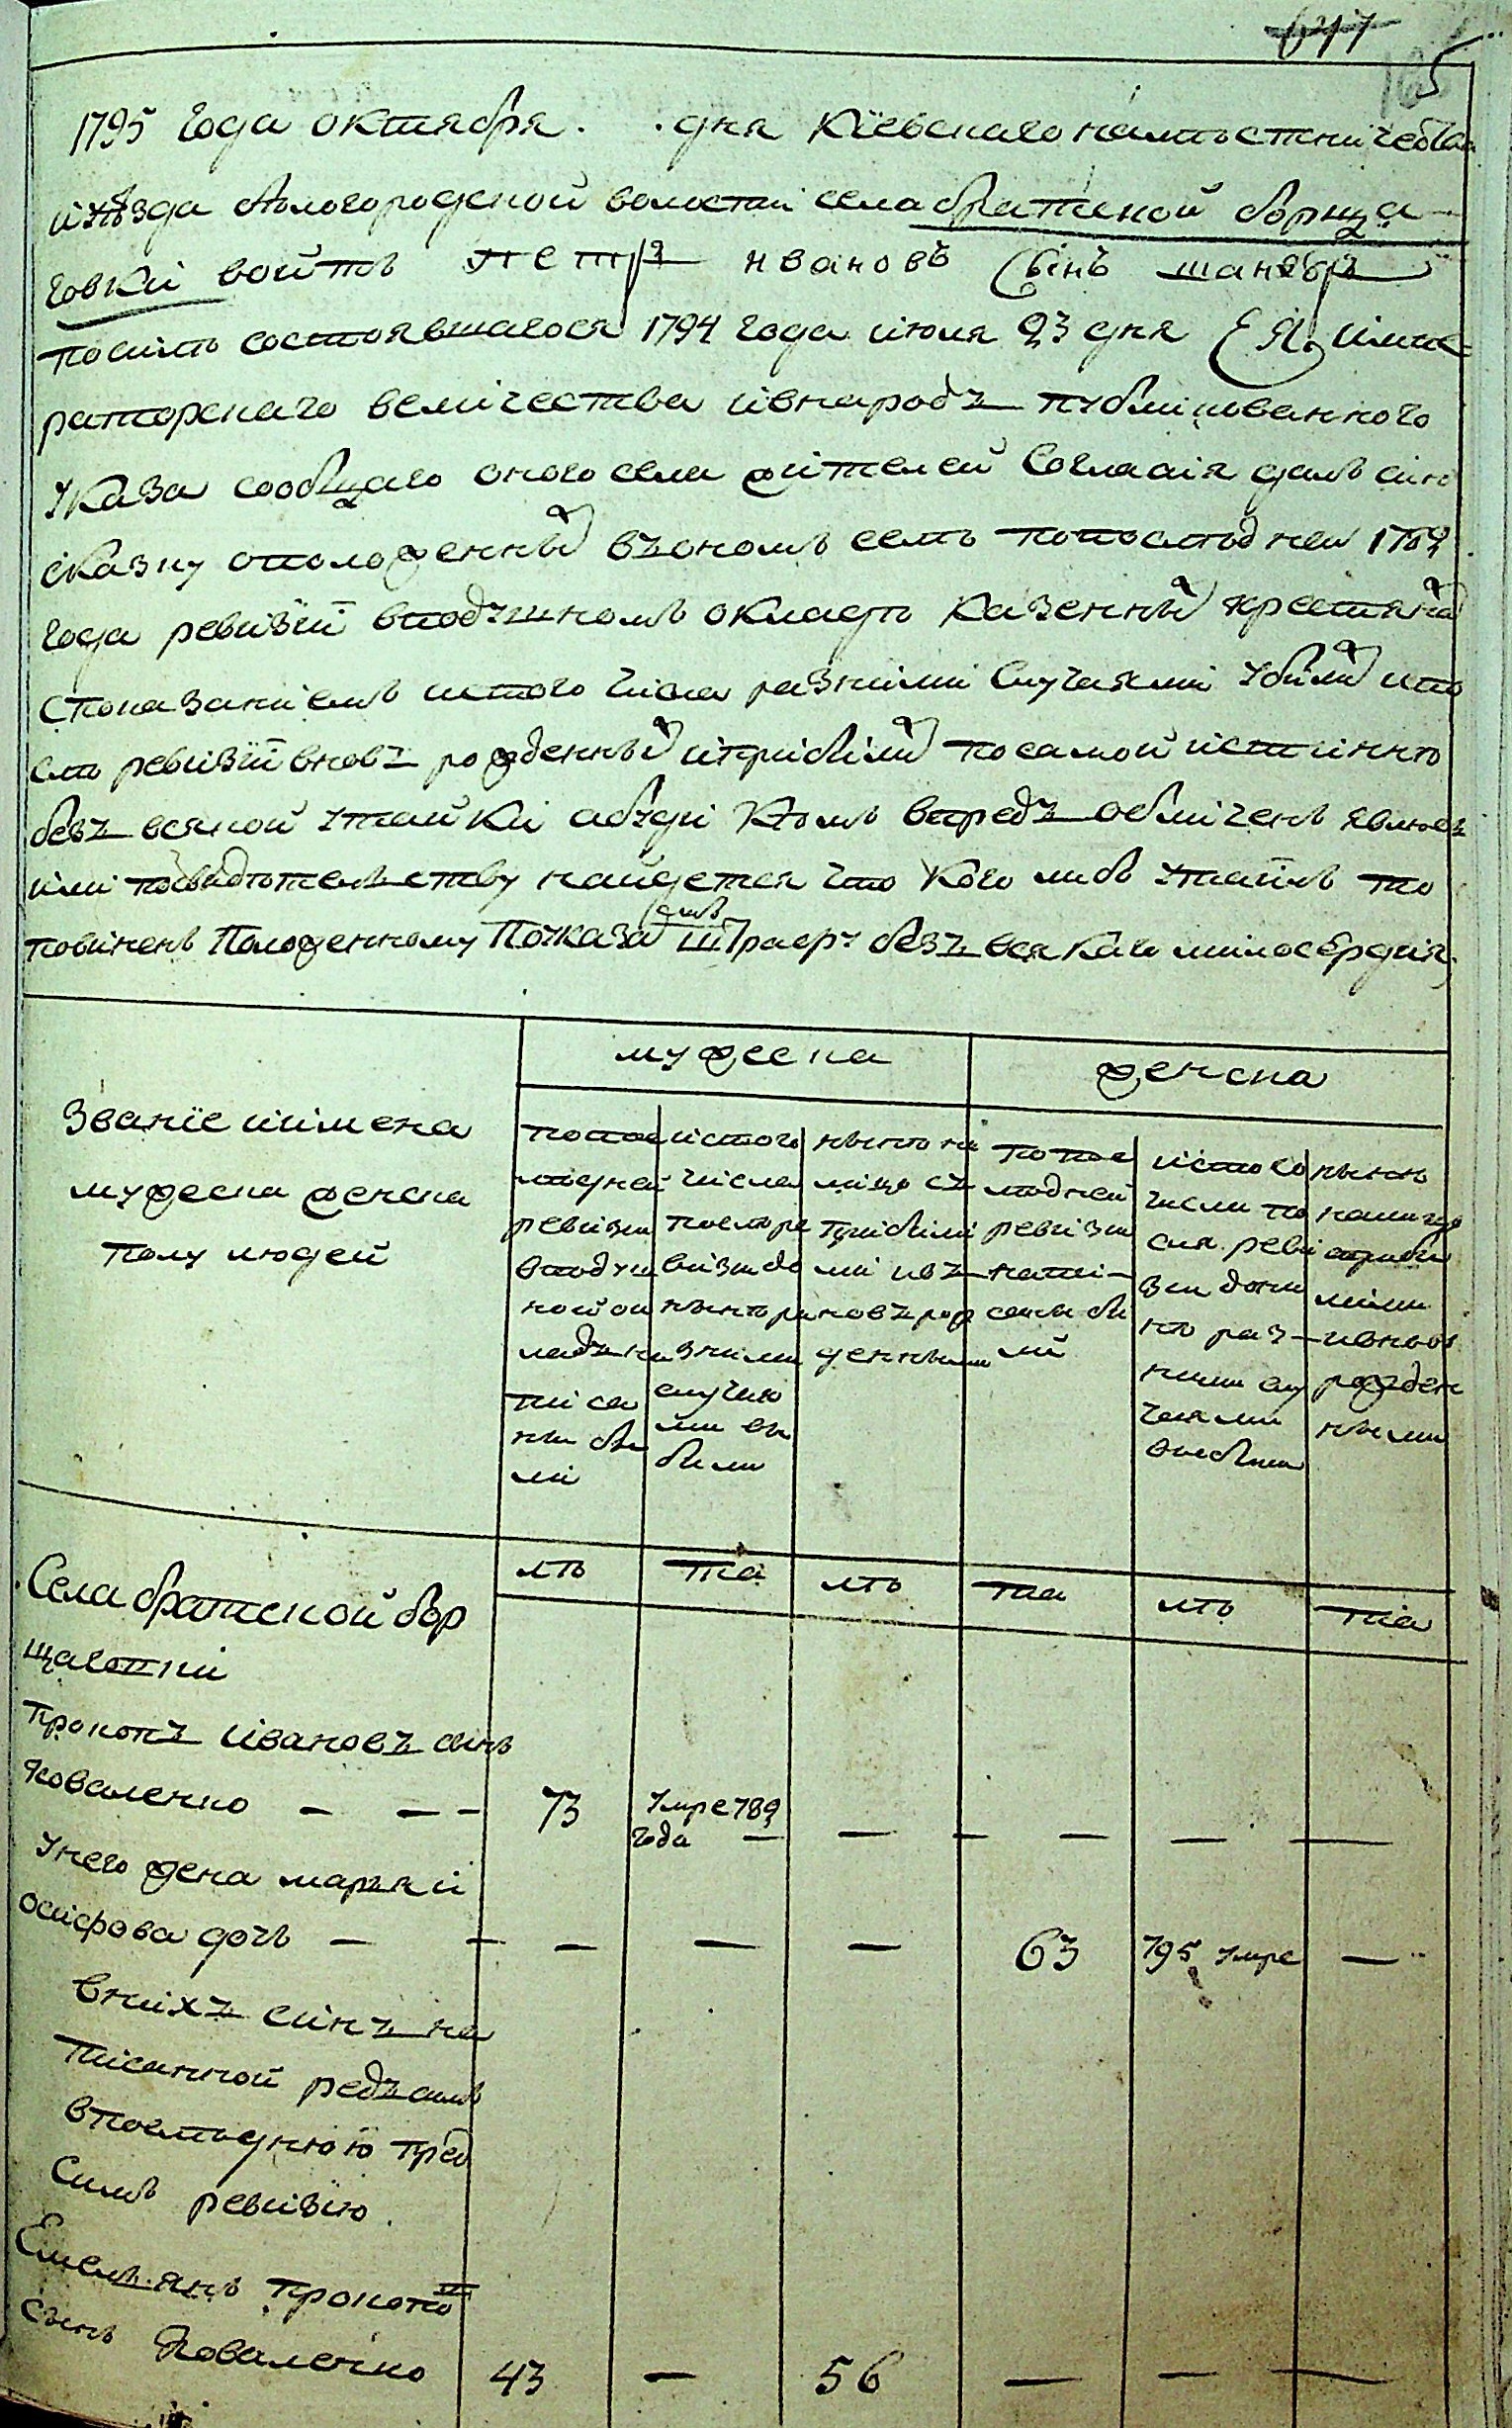 677
165
1795 года октября . . дня Кіевскаго наместничества
и уѣзда белогородской волости села братской борща
говки войтъ петръ ивановъ сынъ
посилѣ состоявшагося 1794 года июля 23 дня ЕЯ импе
раторскаго величества ивнародъ публикованного
Указа собщаго оного села жителей Согласія далъ сию
сказку оположенныхъ въономъ селѣ попоследней 1782
года ревизіи вподушномъ окладѣ казенныхъ крестянахъ
споказаниемъ истого числа разними Случаями убилихъ ипо
слѣ ревизіи вновъ рожденныхъ иприбилихъ посамой истинне
безъ всякой утайки абуде Кто впредъ обличенъ явлюсъ
или посвидѣтелству найдется что кого либо утаилъ то
повиненъ Положенному Поуказамъ штрафу безъ всякаго милосердия
мужеска
женска
Званіе иимена
мужеска женска
полу людей
попос
лѣдней
ревизии
вподуш
ной ок
ладъ на
писа
ны бы
ли
истого
числа
послѣ ре
визии до
нынѣ ра
зними
случая
ми вы
были
нынѣ на
лицо съ
прибили
ми ивъ
новъ рож
денными
попос
лѣдней
ревизии
напи
саны бы
ли
истого
числа по
слѣ реви
зии доны
нѣ раз
ними слу
чаями
выбыли
нынѣ
налицо
сприби
лими
ивновъ
рожден
ными
лѣ
та
лѣ
та
лѣ
та
Села братской бор
щаговки
прокопъ ивановъ синъ
Коваленко — — - 73 умре 789
года — — — — — —
Унего жена маря и
осифова дочь — — — — — 63 795 умре —
внихъ синъ на
писанной
впоследнюю пред
Симъ ревизію.
Емельянъ прокопов
сынъ Коваленко 43 — 56 — — —